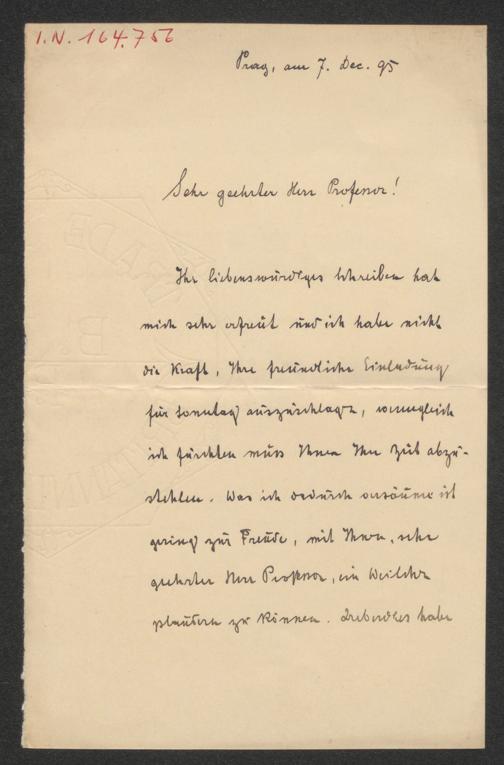 I.N. 164.756
Prag, am 7. Dec. 95
Sehr geehrter Herr Professor!
Ihr liebenswürdiges Schreiben hat
mich sehr erfreut und ich habe nicht
die Kraft, Ihre freundliche Einladung
für Sonntag auszuschlagen, wenngleich
ich fürchten muss Ihnen Ihre Zeit abzu-
stehlen. Was ich dadurch versäume ist
gering zur Freude, mit Ihnen, sehr
geehrter Herr Professor, ein Weilchen
plaudern zu können. Ueberdies habe